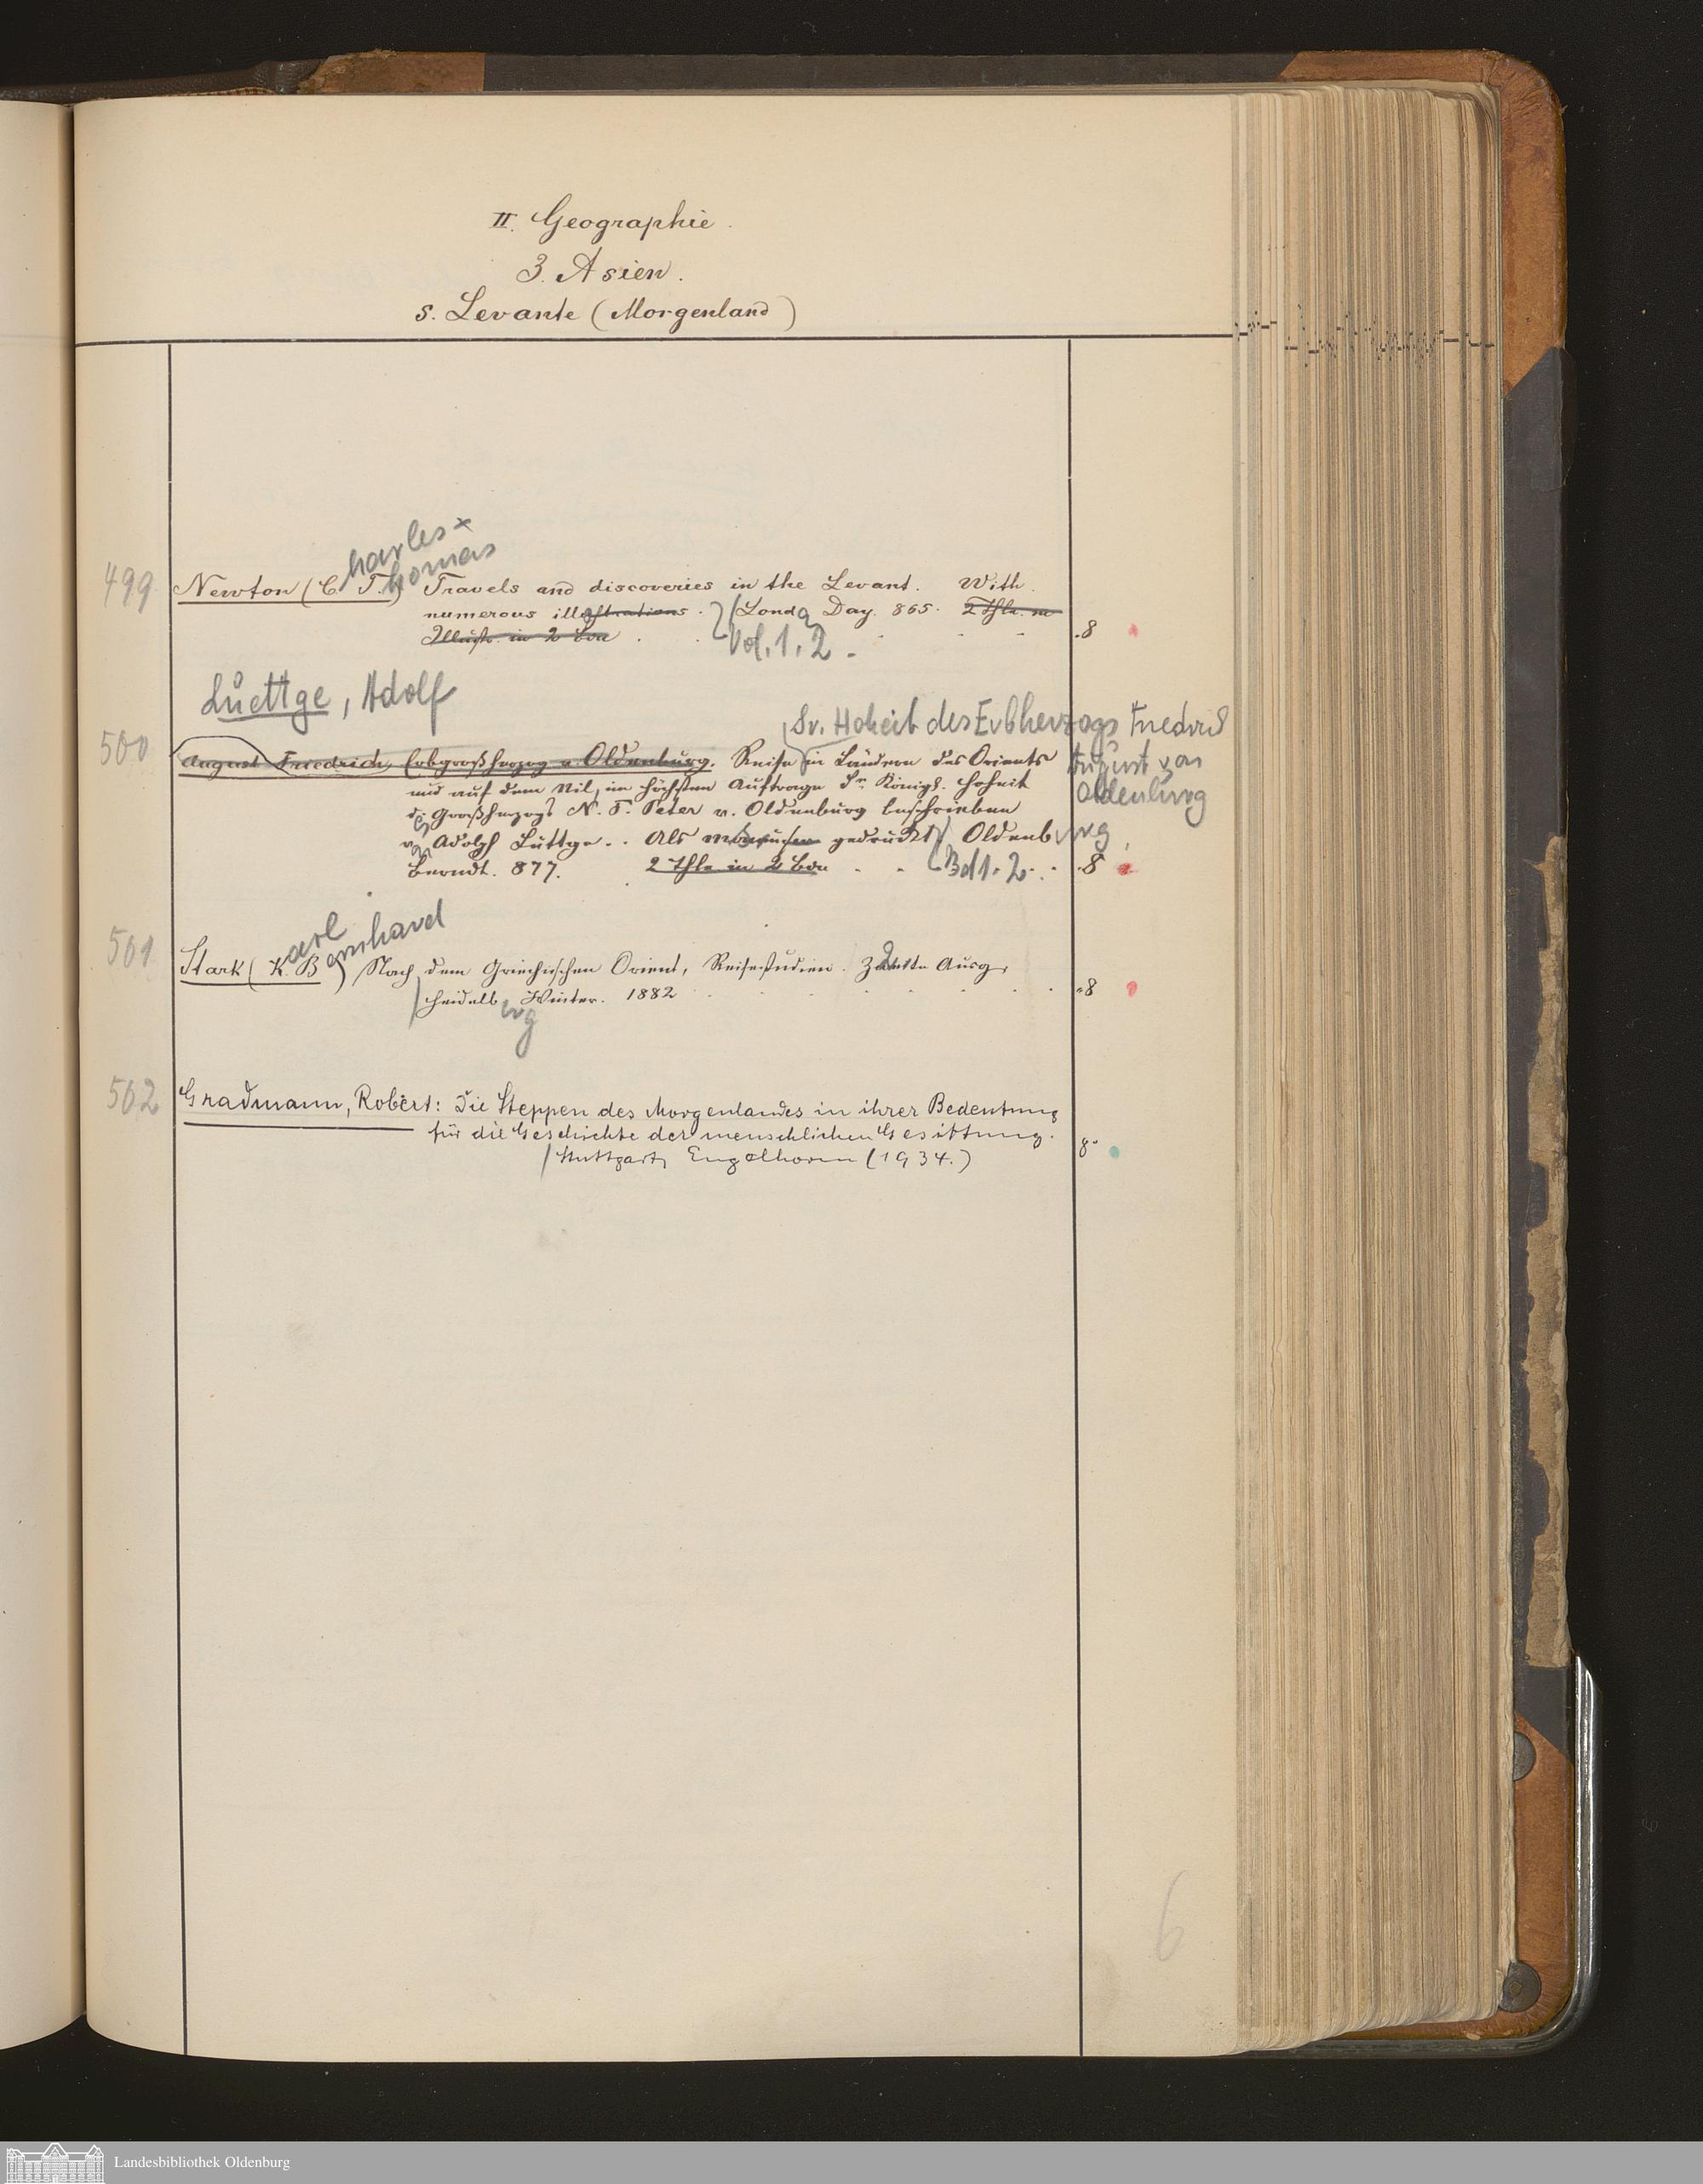 II. Geographie.
3. Asien.
s. Levante (Morgenland)
harles x
homas
499 Newton (C. T.) Travels and discoveries in the Levant. With
numerous illustrations. Lond. Day. 865. 2 Thle. m.
Illustr. in 2 Bdn Vol. 1. 2. 8
Luettge, Adolf
Sr. Hoheit des Erbherzogs Friedrich
500 August Friedrich, Erbgroßherzog v. Oldenburg. Reise in Ländern des Orients August von
und auf dem Nil, im höchsten Auftrage Sr. Königl. Hoheit Oldenburg
d. Großherzogs N. F. Peter v. Oldenburg beschrieben
v. Adolph Lüttge.. Als gedruckt Oldenburg,
Berndt. 877. 2 Thle in 2 Bdn Bd 1. 2. 8
arl
ernhard
501 Stark (K. B.) Nach dem Griechischen Orient, Reisestudien. Ausg.
Heidelb. Winter. 1882 8
rg
502 Gradmann, Robert: Die Steppen des Morgenlandes in ihrer Bedeutung
für die Geschichte der menschlichen Gesittung.
Stuttgart, Engelhorn (1934.) 8°
6
Landesbibliothek Oldenburg